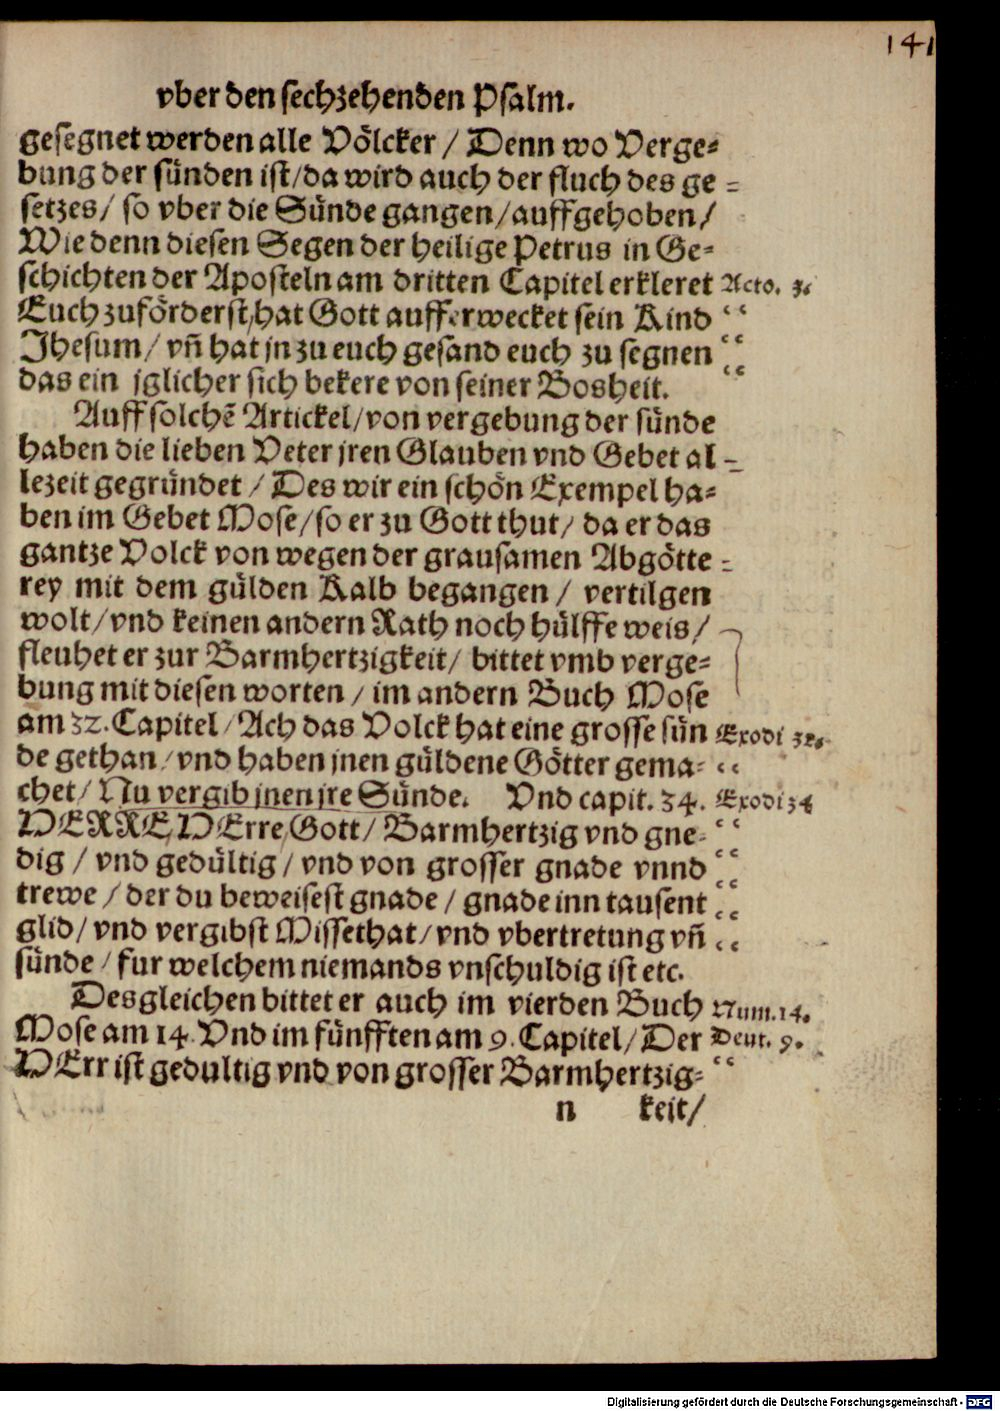 141
vber den sechzehenden Psalm.
gesegnet werden alle Völcker / Denn wo Verge⸗
bung der sünden ist/da wird auch der fluch des ge⸗
setzes/ so vber die Sünde gangen/auffgehoben/
Wie denn diesen Segen der heilige Petrus in Ge⸗
schichten der Aposteln am dritten Capitel erkleret Acto. 3.
Euch zuförderst/hat Gott aufferwecket sein Kind
Jhesum/ vñ hat jn zu euch gesand euch zu segnen
das ein jglicher sich bekere von seiner Bosheit.
Auff solchẽ Artickel/von vergebung der sünde
haben die lieben Veter jren Glauben vnd Gebet al⸗
lezeit gegründet / Des wir ein schön Exempel ha⸗
ben im Gebet Mose/so er zu Gott thut/ da er das
gantze Volck von wegen der grausamen Abgötte⸗
rey mit dem gülden Kalb begangen / vertilgen
wolt/vnd keinen andern Rath noch hülffe weis/
fleuhet er zur Barmhertzigkeit/ bittet vmb verge⸗
bung mit diesen worten / im andern Buch Mose
am 32. Capitel/Ach das Volck hat eine grosse sün Exodi 32.
de gethan/vnd haben jnen güldene Götter gema⸗
chet/ Nu vergib jnen jre Sünde. Vnd capit. 34. Exodi 34
HERRE, HErre Gott/ Barmhertzig vnd gne⸗
dig / vnd gedültig / vnd von grosser gnade vnnd
trewe / der du beweisest gnade / gnade inn tausent
glid/ vnd vergibst Missethat/ vnd vbertretung vñ
sünde / fur welchem niemands vnschuldig ist etc.
Desgleichen bittet er auch im vierden Buch Num. 14.
Mose am 14. Vnd im fünfften am 9. Capitel/ Der Deut. 9.
HErr ist gedultig vnd von grosser Barmhertzig⸗
n keit/
Digitalisierung gefördert durch die Deutsche Forschungsgemeinschaft - DFG